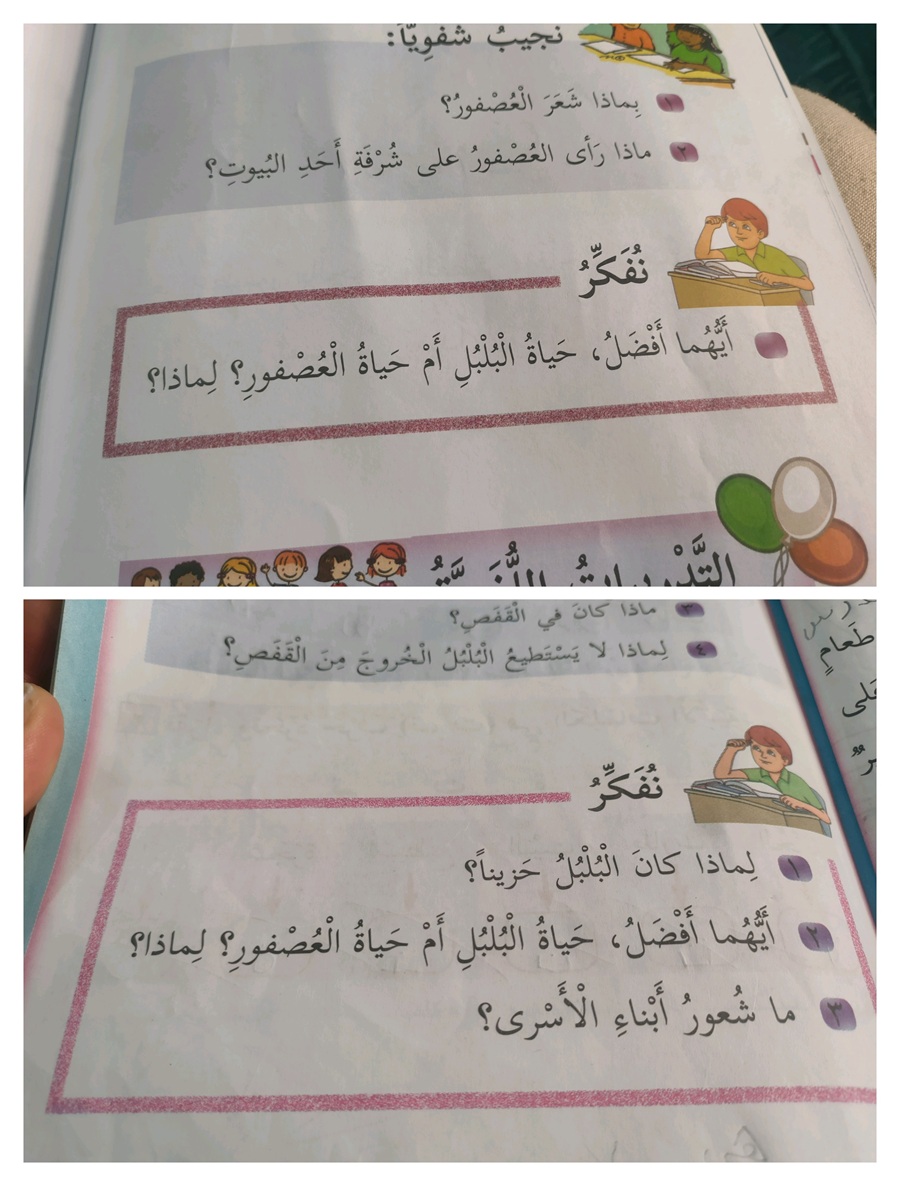 نجيبُ شفوِيّاً:
١ بِماذا شَعَرَ الْعُصْفورُ؟
٢ ماذا رَأى العُصْفورُ على شُرْفَةِ أَحَدِ البُيوتِ؟
نُفَكِّرُ
أَيُّهُما أَفْضَلُ، حَياةُ الْبُلْبُلِ أَمْ حَياةُ الْعُصْفورِ؟ لِماذا؟
التَّدْريباتُ اللُّغَوِيَّةُ
٣ ماذا كانَ في الْقَفَصِ؟
٤ لِماذا لا يَسْتَطيعُ الْبُلْبُلُ الْخُروجَ مِنَ الْقَفَصِ؟
طَعامٍ
نُفَكِّرُ
١ لِماذا كانَ الْبُلْبُلُ حَزيناً؟
٢ أَيُّهُما أَفْضَلُ، حَياةُ الْبُلْبُلِ أَمْ حَياةُ الْعُصْفورِ؟ لِماذا؟
٣ ما شُعورُ أَبْناءِ الْأَسْرى؟